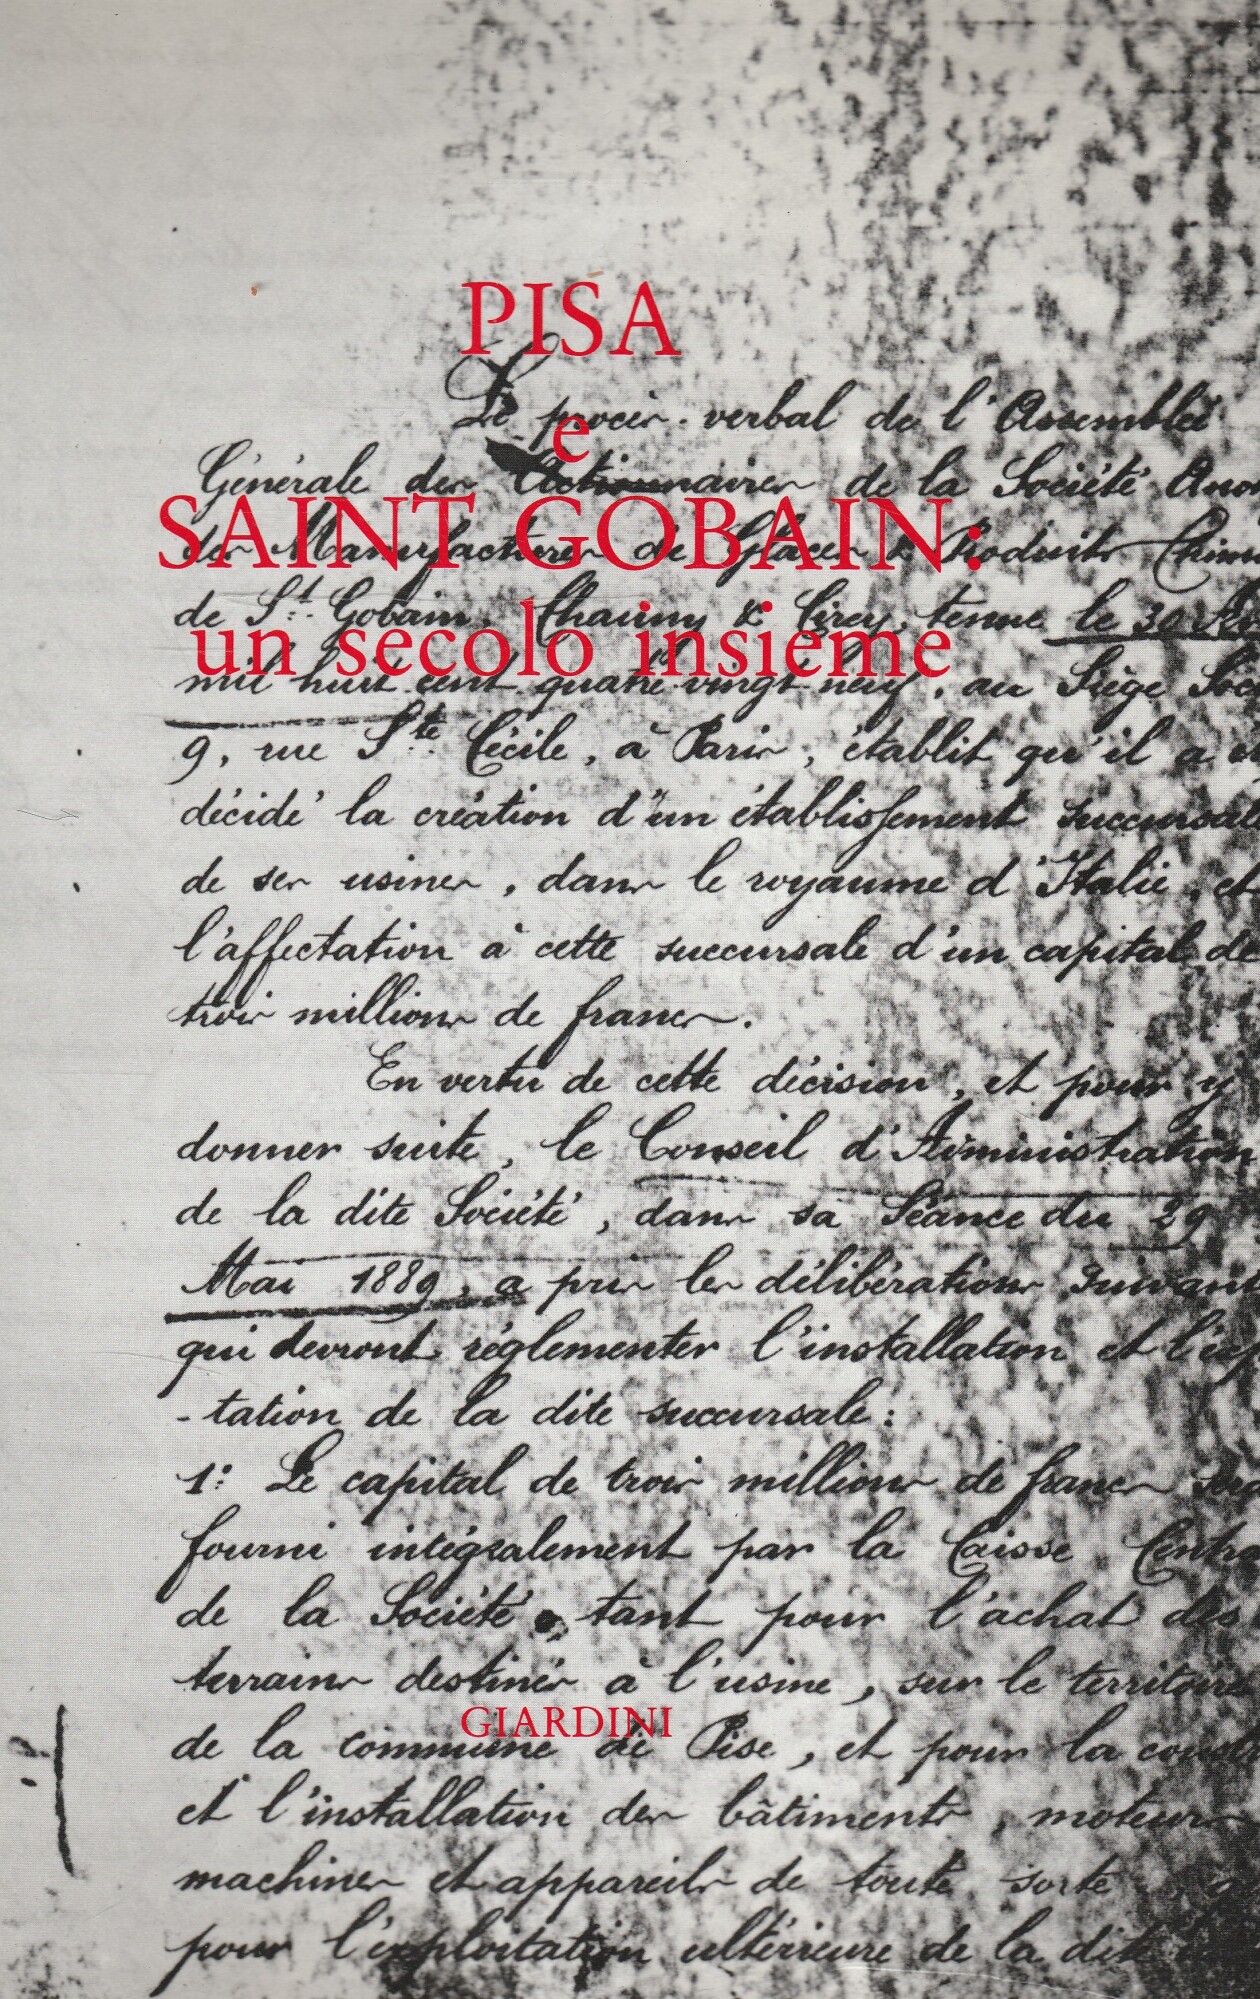 PISA
Le procès-verbal de l'Assemblée
e
Générale des Actionnaires de la Société
SAINT GOBAIN:
des Manufactures de Glaces & Produits
de St. Gobain, Chauny & Cirey, tenue le 30
un secolo insieme
mil huit cent quatre vingt neuf, au Siège
9, rue Ste Cécile, à Paris, établit qu'il a
décidé la création d'un établissement succursale
de ses usines, dans le royaume d'Italie, et
l'affectation à cette succursale d'un capital de
trois millions de francs.
En vertu de cette décision, et pour y
donner suite, le Conseil d'Administration
de la dite Société, dans sa Séance du 29
Mai 1889, a pris les délibérations
qui devront réglementer l'installation et
-tation de la dite succursale:
1: Le capital de trois millions de francs
fourni intégralement par la Caisse
de la Société, tant pour l'achat des
terrains destinés à l'usine, sur le territoire
GIARDINI
de la commune de Pise, et pour la
et l'installation des bâtiments, moteurs
machines et appareils de toute sorte
pour l'exploitation ultérieure de la dite